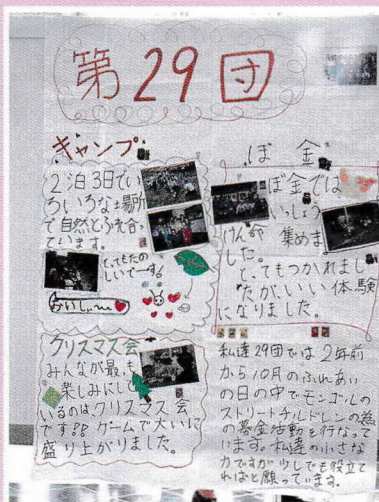 第29団
キャンプ
2泊3日でい
ろいろな場所
で自然とふれ合っ
ています。
とってもたの
しいでーす。
おいしぃ〜
ぼ金
ぼ金では
いっしょう
けん命 集めま
した。
とってもつかれまし
たが、いい体験
になりました。
クリスマス会
みんなが最も
楽しみにして
いるのは、クリスマス会
です!! ゲームで大いに
盛り上がりました。
私達29団では2年前
から10月のふれあい
の日の中でモンゴルの
ストリートチルドレンの為
の募金活動を行なって
います。私達の小さな
力ですが少しでも役立て
ればと願っています。